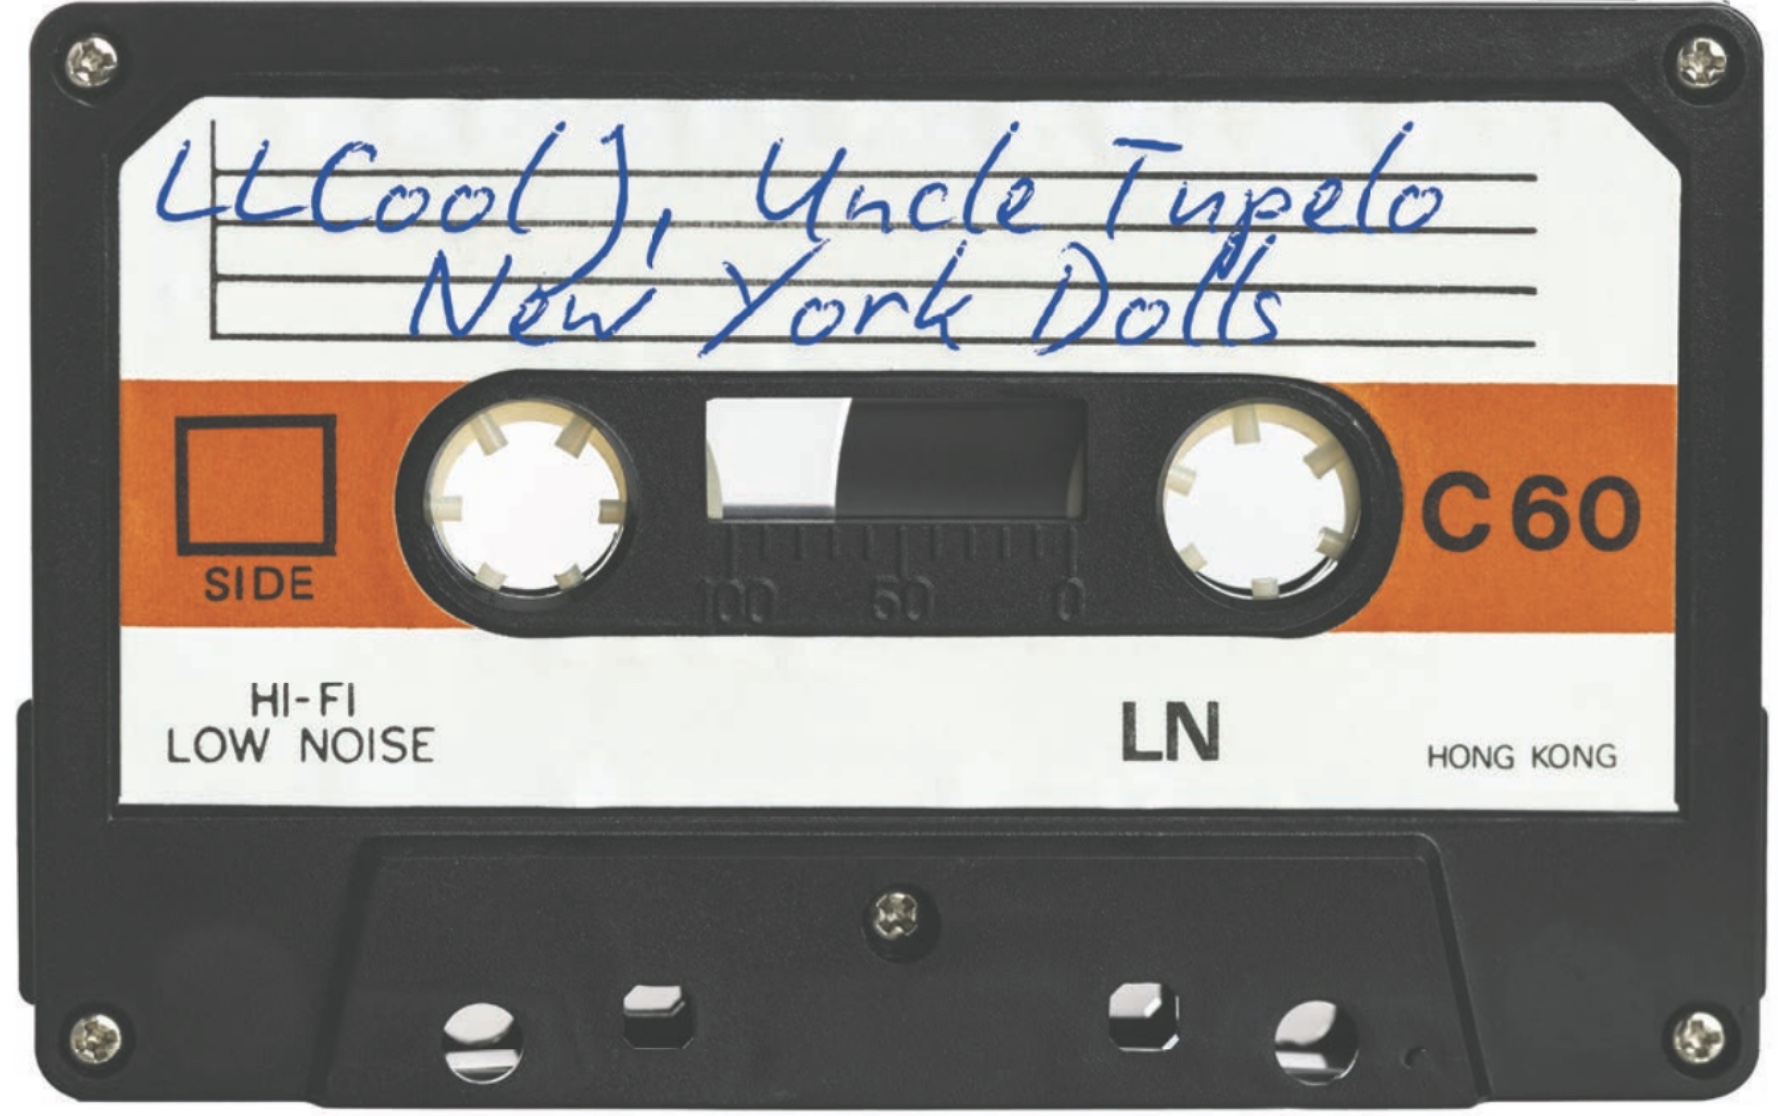 LL Cool J, Uncle Tupelo
New York Dolls
SIDE
100 50 0
C60
HI-FI
LOW NOISE
LN
HONG KONG